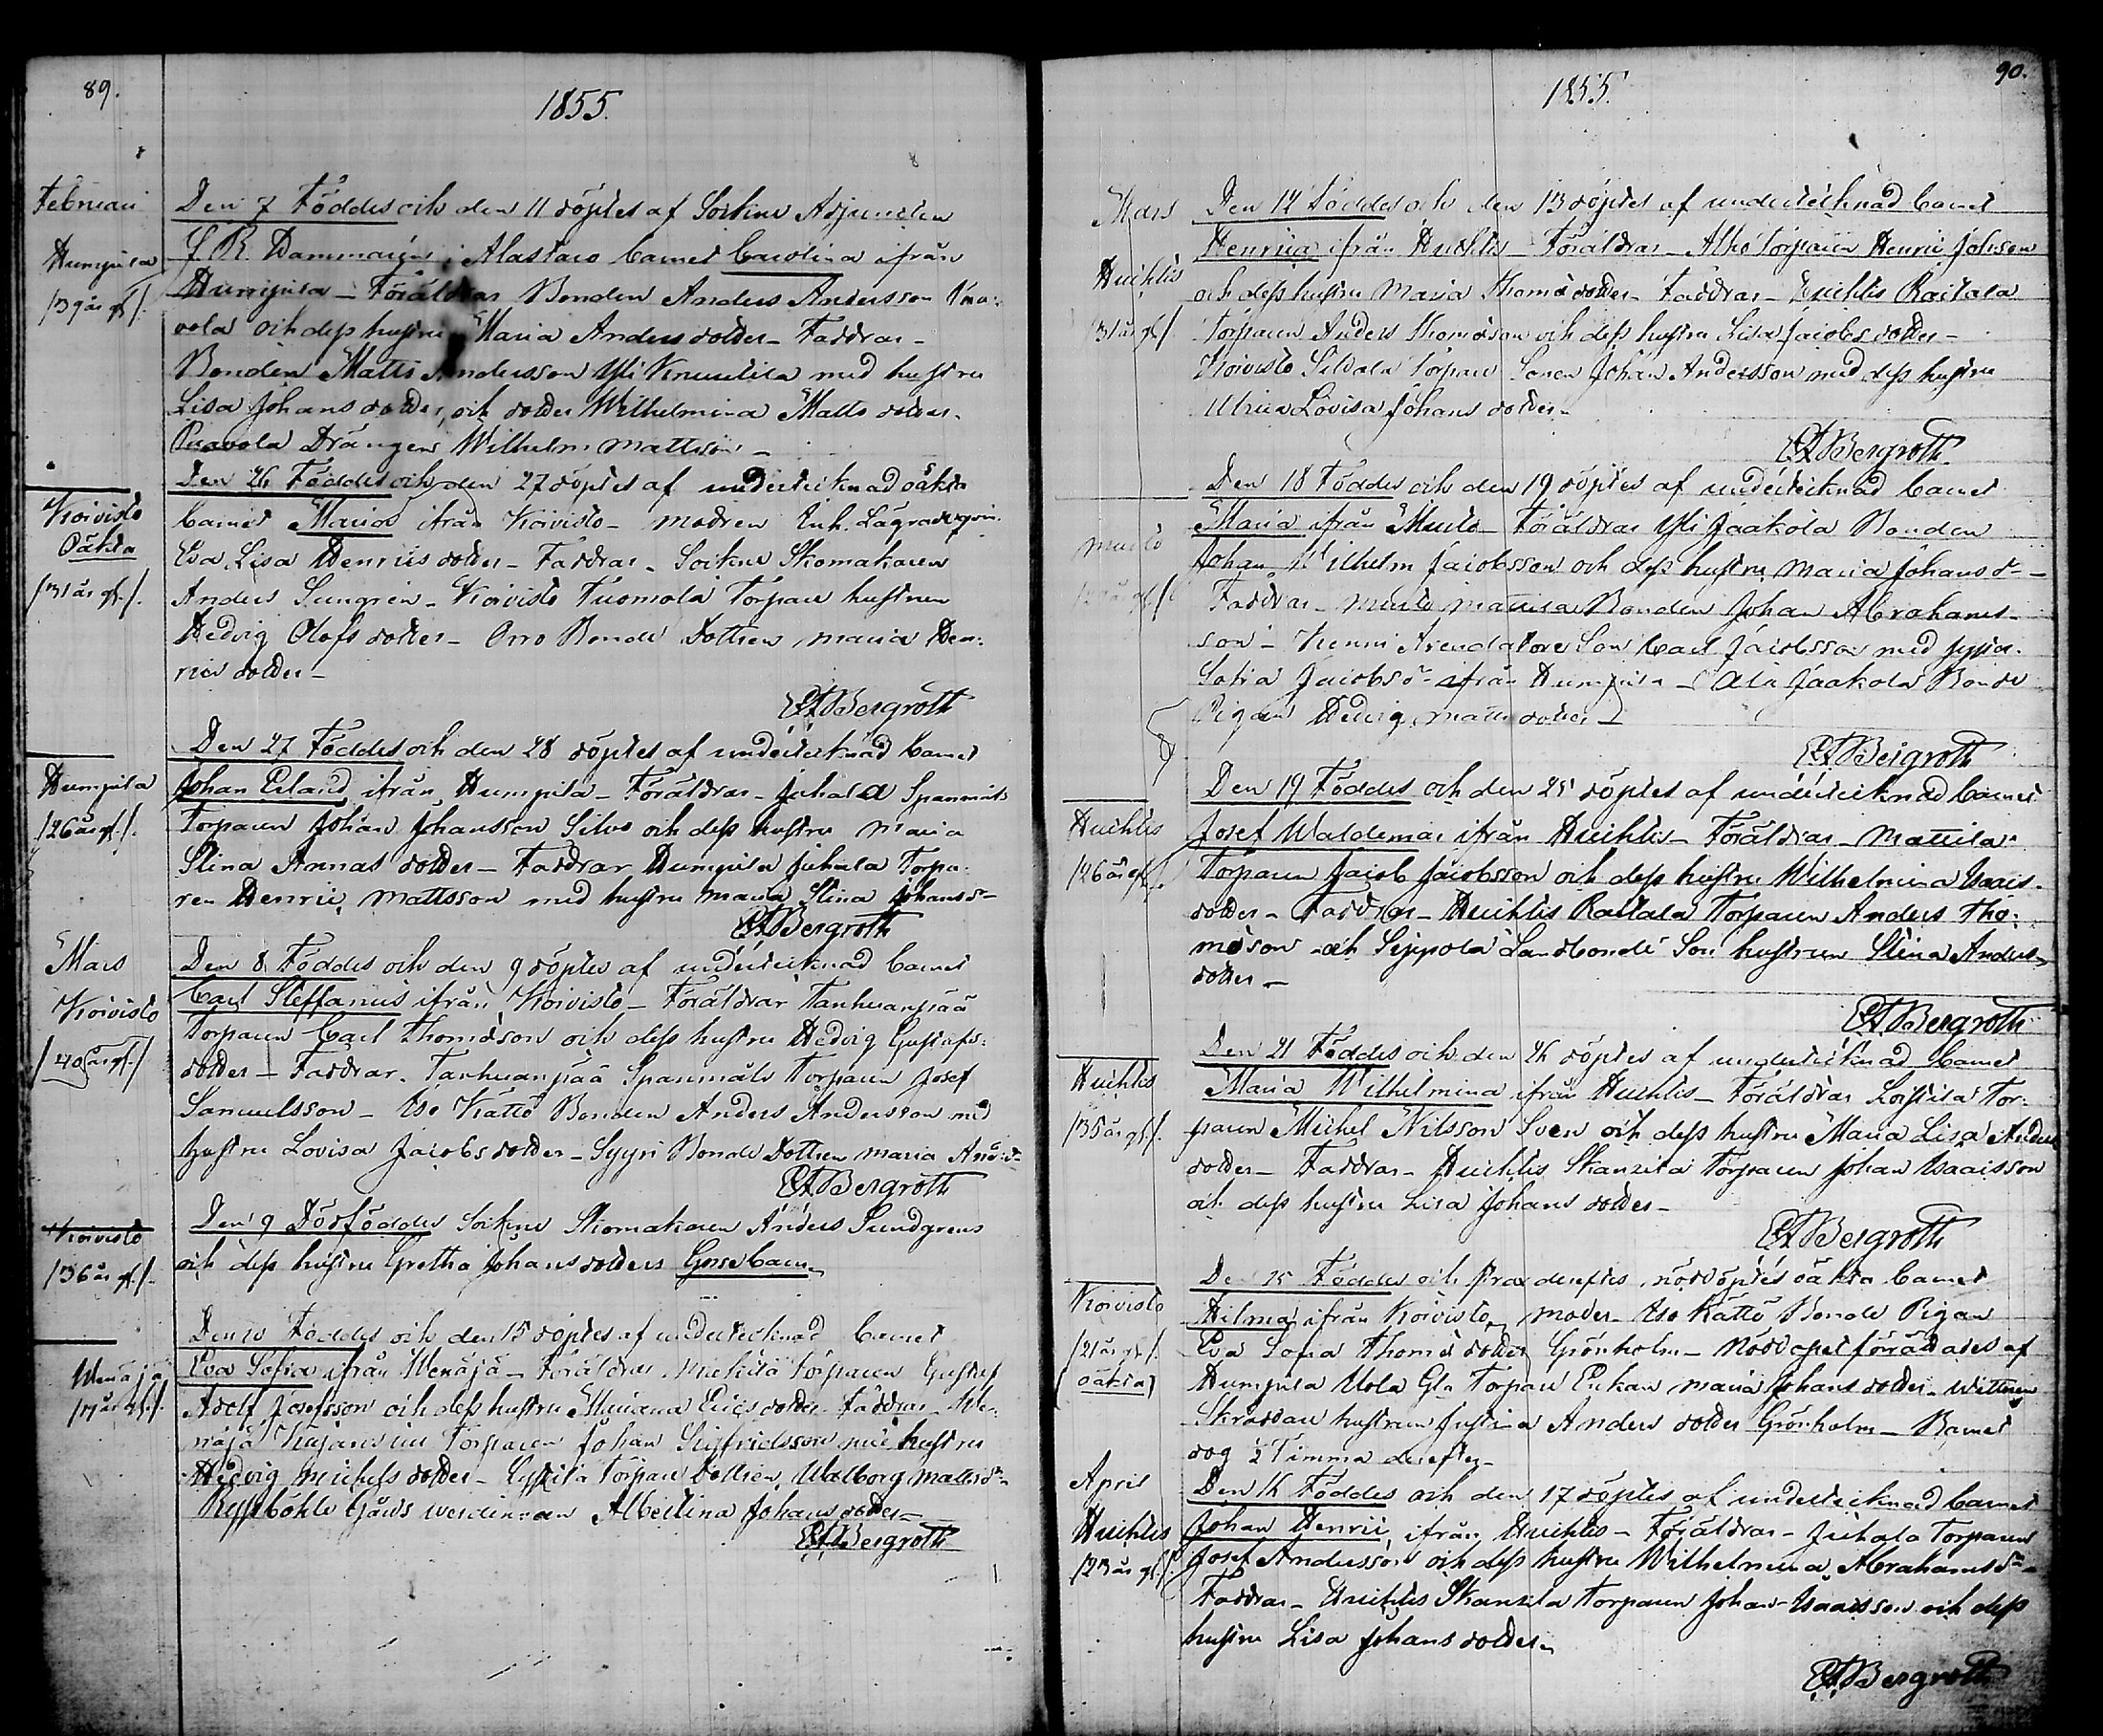 89.
1855.
Februari
Den 7 Föddes och den 11 döptes af Sockne Adjuncten
Humpila
i Alastaro barnet Carolina ifrån
/39 år gl./.
Humpila – Föräldrar Bonden Anders Andersson
vola och dess hustru Maria Anders dotter – Faddrar –
Bonden Matts Andersson Yli med hustru
Lisa Johans dotter, och dotter Wilhelmina Matts dotter.
Drängen Wilhelm Mattsson –
Den 26 Föddes och den 27 döptes af undertecknad oäkta
Koivisto
Oäkta
barnet Maria ifrån Koivisto – modren Enk.
Eva Lisa Henrics dotter – Faddrar – Sockne Skomakaren
/31 år gl./.
Anders Sungrén – Koivisto Tuomola Torpare hustrun
Hedvig Olofs dotter – Orro Bonde Dottren Maria Hen:
rics dotter –
CA Bergroth
Den 27 Föddes och den 28 döptes af undertecknad barnet
Humpila
Johan Erland ifrån Humpila – Föräldrar – Juhala Spanmåls
/26 år gl./.
Torparen Johan Johansson Silvo och dess hustru Maria
Stina Annas dotter – Faddrar Humpila Juhala Torpa:
ren Henric Mattsson med hustru Maria Stina Johans dr
CA Bergroth
Mars
Den 8 Föddes och den 9 döptes af undertecknad barnet
Koivisto
Carl Steffanus ifrån Koivisto – Föräldrar Tanhuanpää
/40 år gl./
Torparen Carl Thomasson och dess hustru Hedvig Gustafs:
dotter – Faddrar. Tanhuanpää Spanmåls Torparen Josef
Samuelsson – Iso Kättö Bonden Anders Andersson med
hustru Lovisa Jacobs dotter – Syyri Bonde Dottren Maria And: dr
CA Bergroth
Koivisto
Den 9 Dödföddes Sockne Skomakaren Anders Sundgrens
/36 år gl./.
och dess hustru Gretha Johans dotters Gossebarn.
Den 10 Föddes och den 15 döptes af undertecknad barnet
Wenäjä
Eva Sofia ifrån Wenäjä – Föräldrar Torparen Gustaf
Adolf Josefsson och dess hustru Mariana Erics dotter Faddrar – We:
näjä Torparen Johan Sigfridsson med hustru
Hedvig Michels dotter – Torpare Dottren Walborg Matts dr
Gårds werdinnan Albertina Johans dotter –
CA Bergroth
90.
1855.
Mars
Den 12 Föddes och den 13 döptes af undertecknad barnet
Huchtis
Henrica ifrån Huchtis – Föräldrar – Alho Torparen Henric Johnson
och dess hustru Maria Thomas dotter – Faddrar – Huchtis Raitala
/31 år gl./.
Torparen Anders Thomasson och dess hustru Lisa Jacobs dotter –
Koivisto Torpare Sonen Johan Andersson med dess hustru
Ulrica Lovisa Johans dotter –
CA Bergroth
Den 18 Föddes och den 19 döptes af undertecknad barnet
Murto
Maria ifrån Murto – Föräldrar Yli Jaakola Bonden
Johan Wilhelm Jacobsson och dess hustru Maria Johans dr –
Faddrar – Murto Mattila Bonden Johan Abrahams–
son – Arendatore Son Carl Jacobsson med
Sofia Jacobs dr ifrån Humpila – Ala Jaakola Bonde
Pigan Hedvig Matts dotter –
CA Bergroth
Den 19 Föddes och den 25 döptes af undertecknad barnet
Huchtis
Josef Waldemar ifrån Huchtis – Föräldrar – Mattila
/26 år gl./.
Torparen Jacob Jacobsson och dess hustru Wilhelmina Isacs–
dotter – Faddrar – Huchtis Raitala Torparen Anders Tho:
masson och Seppola Landbonde Son hustrun Stina Anders
dotter –
CA Bergroth
Den 21 Föddes och den 26 döptes af undertecknad barnet
Huchtis
Maria Wilhelmina ifrån Huchtis – Föräldrar Tor:
/35 år gl./.
paren Michel Nilsson Sven och dess hustru Maria Lisa Anders
dotter – Faddrar – Huchtis Skanzila Torparen Johan Isacsson
och dess hustru Lisa Johans dotter –
CA Bergroth
Den 25 Föddes och strax derefter nöddöptes oäkta barnet
Koivisto
Hilma ifrån Koivisto, moder Iso Kättö Bonde Pigan
/21 år gl./.
Eva Sofia Thomas dotter Grönholm – Nöddopet förrättades af
oäkta
Humpila Uola Gla Torpare Enkan Maria Johans dotter – Wittnen
Skräddare hustrun Justina Anders dotter Grönholm – Barnet
dog ½ Timma derefter –
April
Den 16 Föddes och den 17 döptes af undertecknad barnet
Huchtis
Johan Henric ifrån Huchtis – Föräldrar – Juhala Torparen
/23 år gl./.
Josef Andersson och dess hustru Wilhelmina Abrahams dr –
Faddrar – Huchtis Skanzila Torparen Johan Isacsson och dess
hustru Lisa Johans dotter –
CA Bergroth